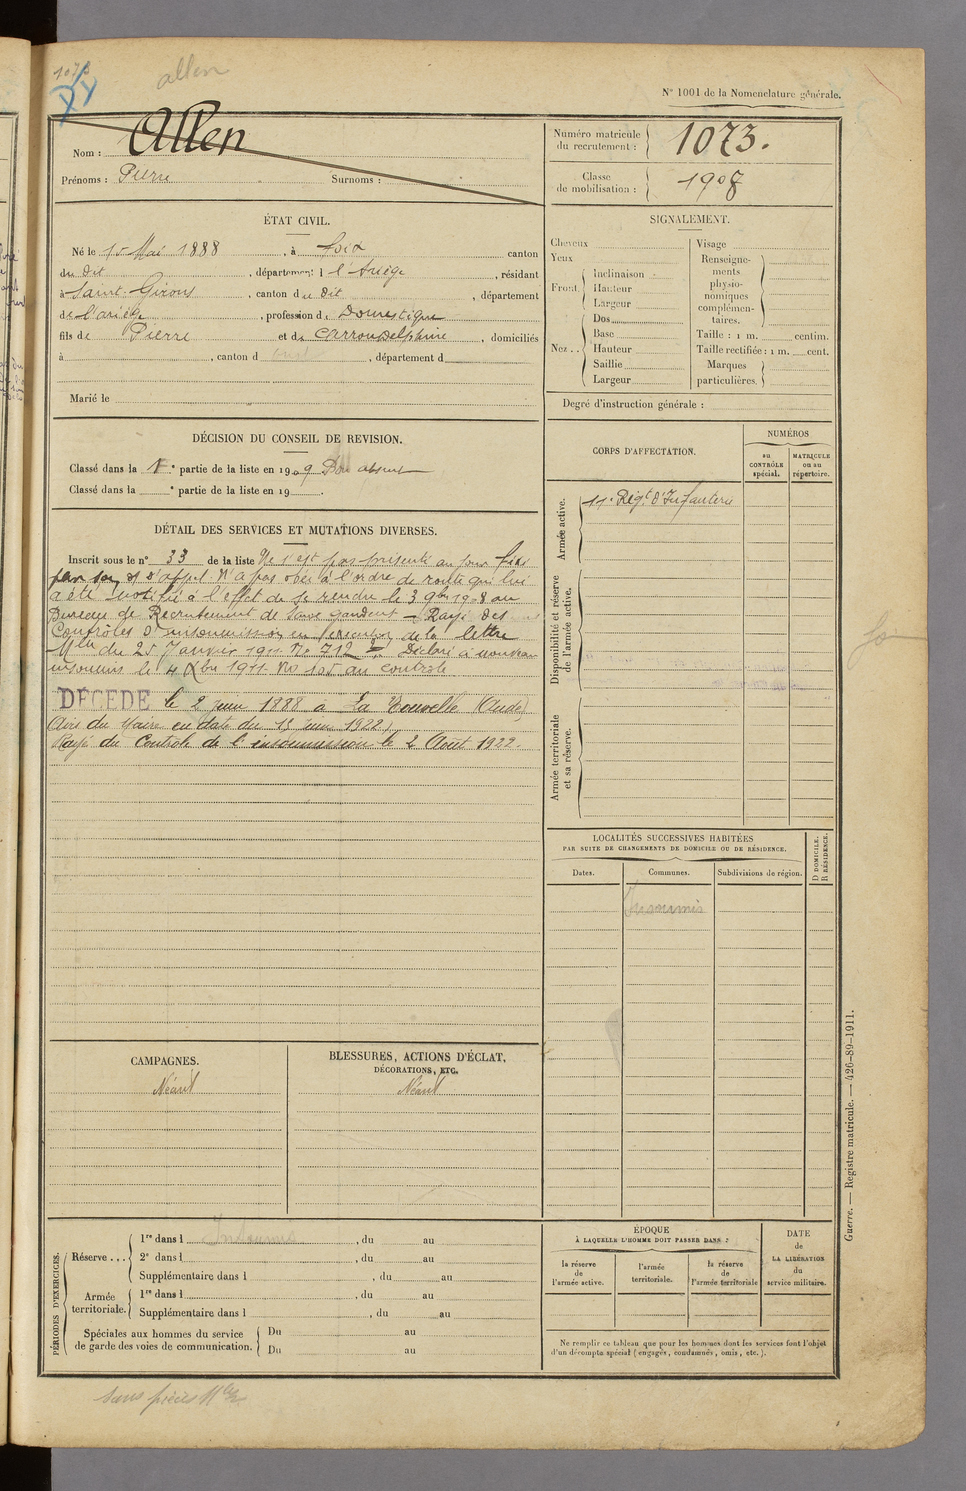 1073
allen
N° 1001 de la Nomenclature générale.
Nom : Allen
Prénoms : Pierre Surnoms :
Numéro matricule du recrutement : 1073.
Classe de mobilisation : 1908
ÉTAT CIVIL.
Né le 15 Mai 1888, à Foix canton
du dit, département d l'Ariège, résidant
à Saint-Girons, canton du dit, département
de l'ariège, profession de Domestique
fils de Pierre et de Carrou Delphine, domiciliés
à , canton d , département d
Marié le
SIGNALEMENT.
Cheveux
Yeux
Front. Inclinaison
Hauteur
Largeur
Nez.. Dos
Base
Hauteur
Saillie
Largeur
Visage
Renseignements physionomiques complémentaires.
Taille : 1 m. centim.
Taille rectifiée : 1 m. cent.
Marques particulières.
Degré d'instruction générale :
DÉCISION DU CONSEIL DE REVISION.
Classé dans la 1e partie de la liste en 1909 Bon absent
Classé dans la e partie de la liste en 19 .
DÉTAIL DES SERVICES ET MUTATIONS DIVERSES.
Inscrit sous le n° 33 de la liste Ne s'est pas présenté au jour fixé
par son d'appel. N'a pas obéi à l'ordre de route qui lui
a été notifié à l'effet de se rendre le 3 9bre 1908 au
Bureau de Recrutement de Saint gaudens - Rayé des
Contrôles d'insoumission en exécution de la lettre
Mlle du 25 Janvier 1911 No 712 Déclaré à nouveau
insoumis le 4 Xbre 1911. No 105 au controle
DÉCÉDÉ le 2 juin 1888 à La Nouvelle (Aude)
Avis du Maire en date du 15 juin 1922
Rayé du Controle de l'insoumission le 2 Août 1922.
CORPS D'AFFECTATION.
NUMÉROS
au CONTRÔLE spécial.
MATRICULE ou au répertoire.
Armée active.
11e Régt d'Infanterie
Disponibilité et réserve de l'armée active.
Armée territoriale et sa réserve.
LOCALITÉS SUCCESSIVES HABITÉES
PAR SUITE DE CHANGEMENTS DE DOMICILE OU DE RÉSIDENCE.
D DOMICILE.
R RÉSIDENCE.
Dates. Communes. Subdivisions de région.
Insoumis
CAMPAGNES.
Néant
BLESSURES, ACTIONS D'ÉCLAT,
DÉCORATIONS, ETC.
Néant
PÉRIODES D'EXERCICES.
Réserve ... 1re dans l Insoumis, du au
2e dans l , du au
Supplémentaire dans l , du au
Armée territoriale. 1re dans l , du au
Supplémentaire dans l , du au
Spéciales aux hommes du service de garde des voies de communication. Du au
Du au
ÉPOQUE
À LAQUELLE L'HOMME DOIT PASSER DANS :
la réserve de l'armée active.
l'armée territoriale.
la réserve de l'armée territoriale
DATE de LA LIBÉRATION du service militaire.
Ne remplir ce tableau que pour les hommes dont les services font l'objet
d'un décompte spécial (engagés, condamnés, omis, etc.).
Guerre. — Registre matricule. — 426-89-1911.
sans pièces Mles